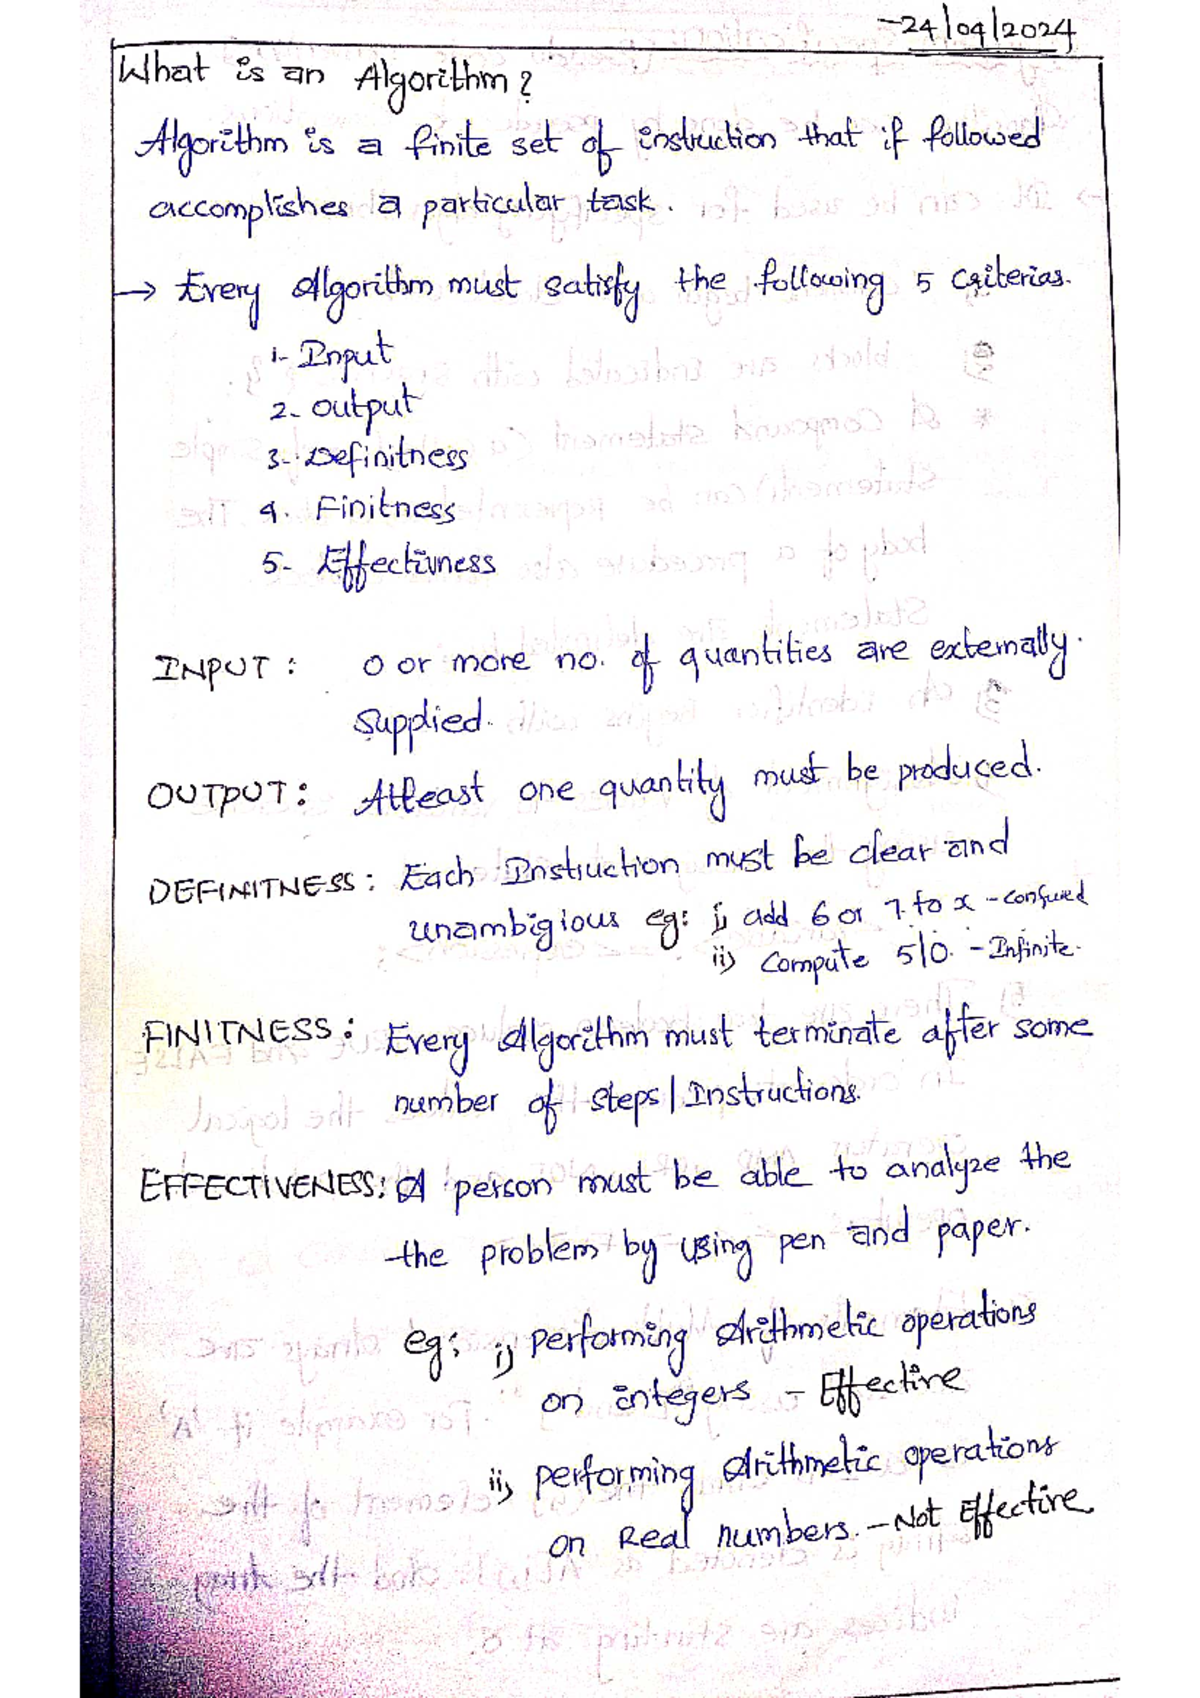 -24/04/2024
What is an Algorithm?
Algorithm is a finite set of instruction that if followed
accomplishes a particular task.
→ Every Algorithm must satisfy the following 5 criterias.
1- Input
2- output
3- Definitness
4. Finitness
5- Effectivness
INPUT: 0 or more no. of quantities are externally
supplied.
OUTPUT: Atleast one quantity must be produced.
DEFINITNESS: Each Instruction must be clear and
unambigious eg: i) add 6 or 7 to x - confused
ii) Compute 5/0. - Infinite.
FINITNESS: Every Algorithm must terminate after some
number of steps/Instructions.
EFFECTIVENESS: A person must be able to analyze the
the problem by using pen and paper.
eg: i) performing Arithmetic operations
on integers - Effective
ii) performing Arithmetic operations
on Real numbers. - Not Effective